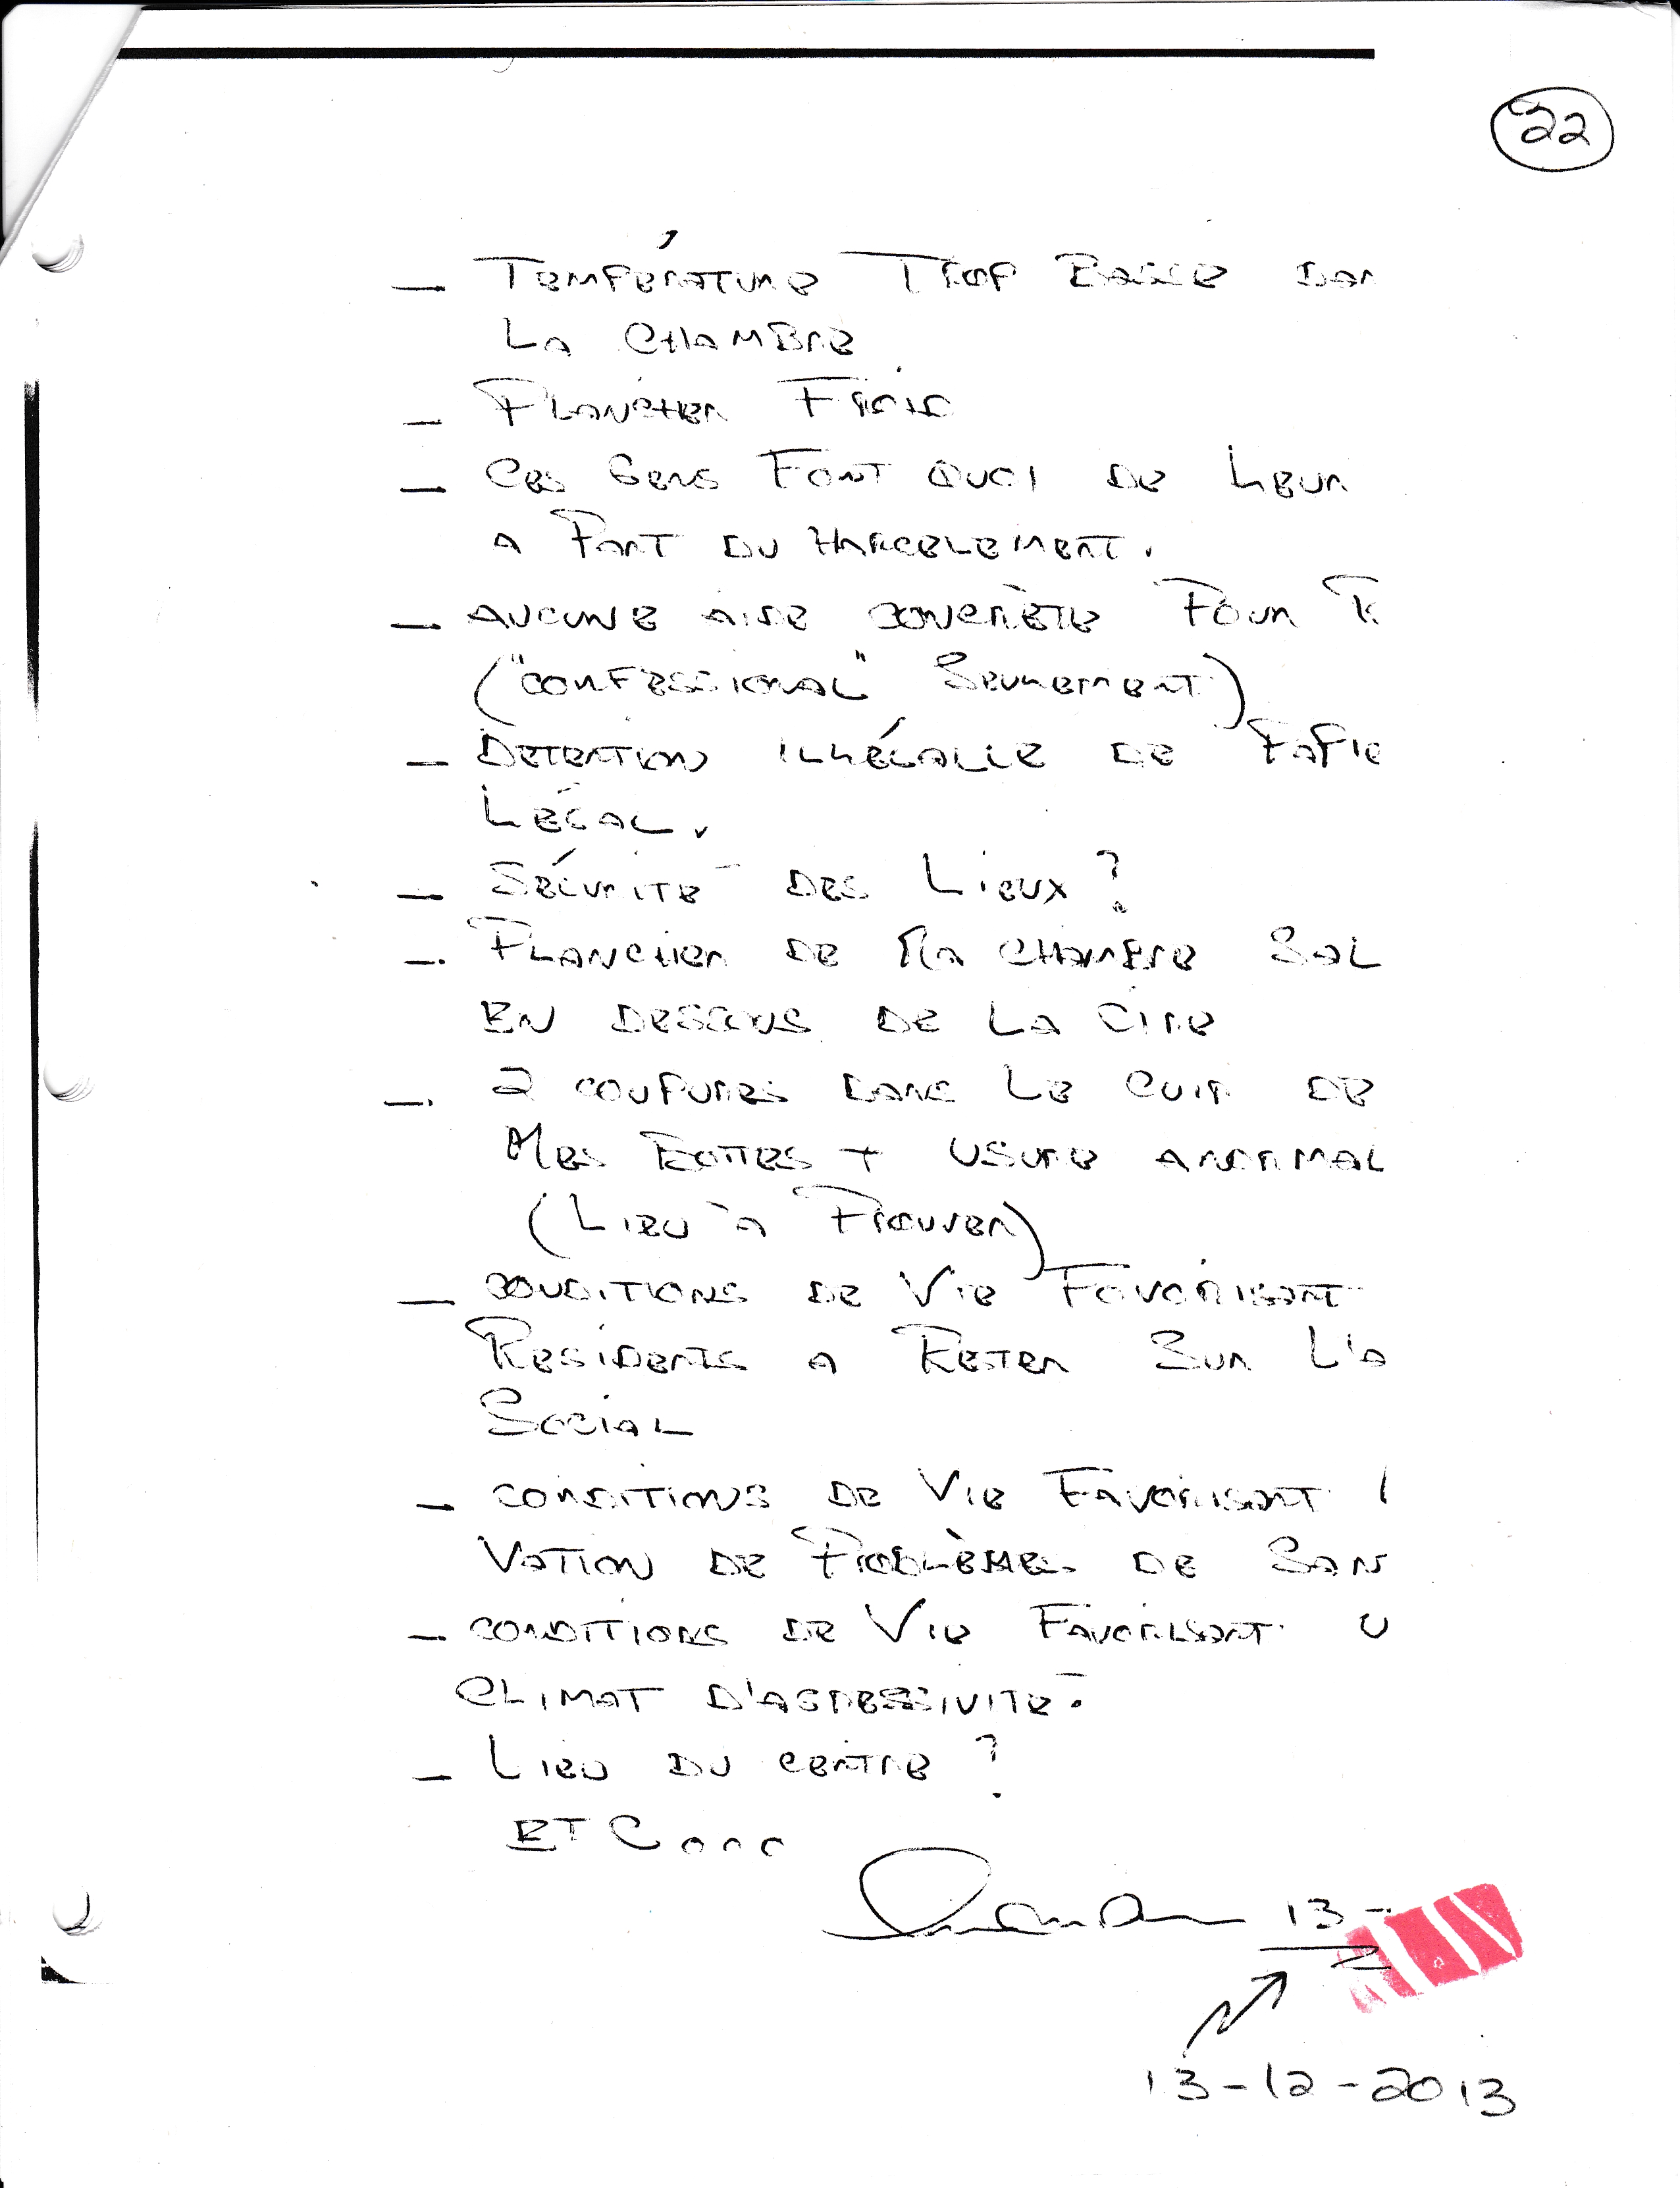 22
— TEMPÉRATURE TROP BASSE DAN
LA CHAMBRE
— PLANCHER FROID
— CES GENS FONT QUOI DE LEUR
A PART DU HARCELEMENT.
— AUCUNE AIDE CONCRÈTE POUR
("CONFESSIONAL" SEULEMENT)
— DETENTION ILLÉGALLE DE PAPIE
LÉGAL.
— SÉCURITÉ DES LIEUX ?
— PLANCHER DE MA CHAMBRE SAL
EN DESSOUS DE LA CIRE
— 2 COUPURES DANS LE CUIR DE
MES BOTTES + USURE ANORMAL
(LIEU À PROUVER)
— CONDITIONS DE VIE FAVORISANT
RESIDENTS A RESTER SUR L'A
SOCIAL
— CONDITIONS DE VIE FAVORISANT
VATION DE PROBLÈMES DE SAN
— CONDITIONS DE VIE FAVORISANT U
CLIMAT D'AGRESSIVITÉ.
— LIEU DU CENTRE ?
ETC
13 -
13-12-2013